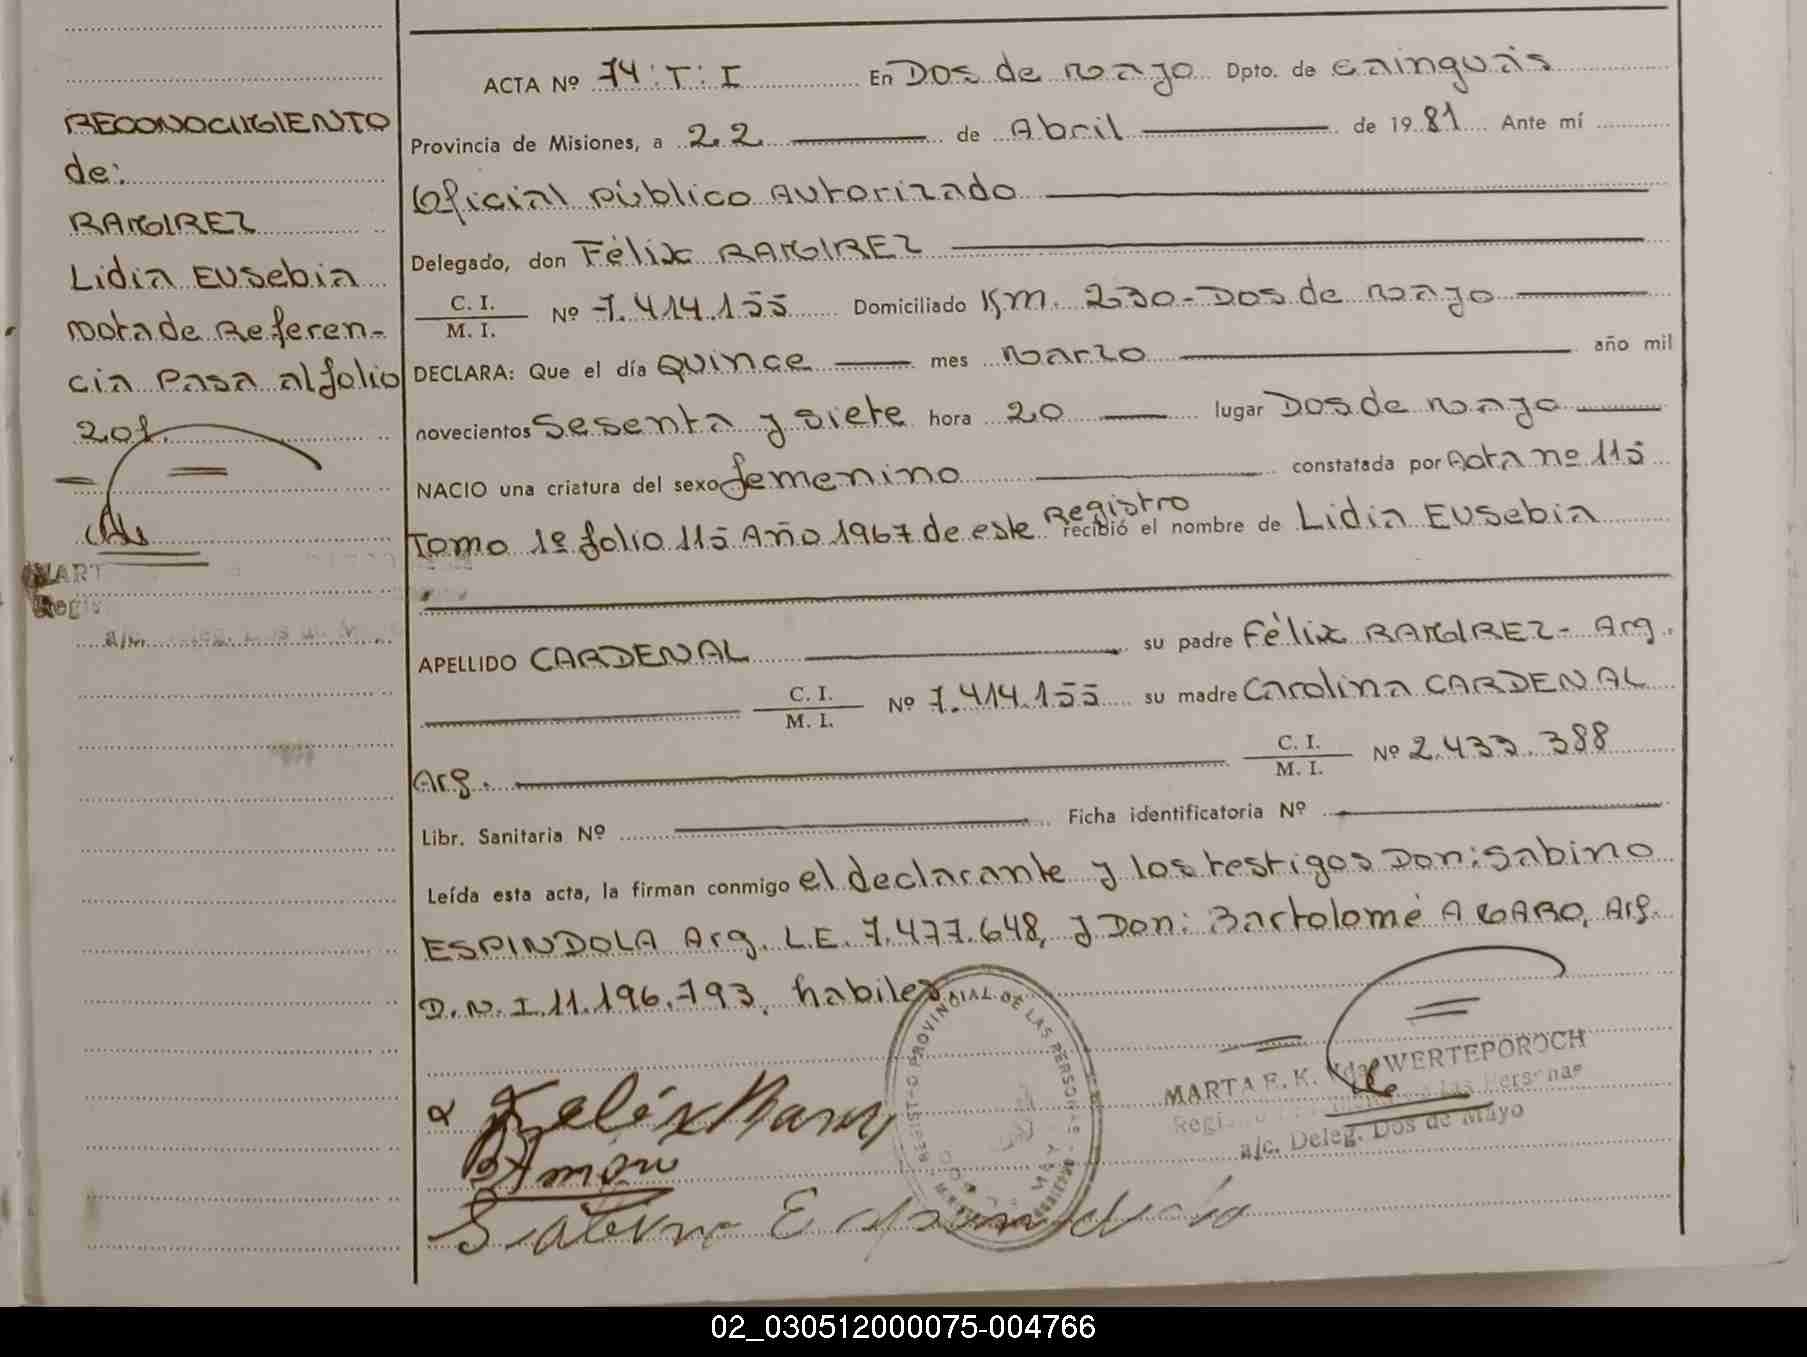 RECONOCIMIENTO
de:
RAMIREZ
Lidia EUSebia
Nota de Referen-
cia Pasa al folio
201.
MART
Regis
ACTA Nº 74:T:I En Dos de Mayo Dpto. de Cainguás
Provincia de Misiones, a 22 de Abril de 1981 Ante mí
Oficial Público Autorizado
Delegado, don Félix RAMIREZ
C. I.
M. I. Nº 7.414.155 Domiciliado Km. 230-Dos de Mayo
DECLARA: Que el día QUINCE mes Marzo año mil
novecientos Sesenta y siete hora 20 lugar Dos de Mayo
NACIO una criatura del sexo femenino constatada por Acta nº 115
Tomo 1º folio 115 Año 1967 de este Registro recibió el nombre de Lidia EUSebia
APELLIDO CARDENAL su padre Félix RAMIREZ- Arg.
C. I.
M. I. Nº 7.414.155 su madre Carolina CARDENAL
Arg. C. I.
M. I. Nº 2.433.388
Libr. Sanitaria Nº Ficha identificatoria Nº
Leída esta acta, la firman conmigo el declarante y los testigos Don: Sabino
ESPINDOLA Arg. L.E. 7.477.648, y Don: Bartolomé AMARO, Arg.
D.N.I. 11.196.793, habiles
PROVINCIAL DE LAS PERSONAS
MARTA E. K. Vda. WERTEPOROCH
a/c. Deleg. Dos de Mayo
02_030512000075-004766